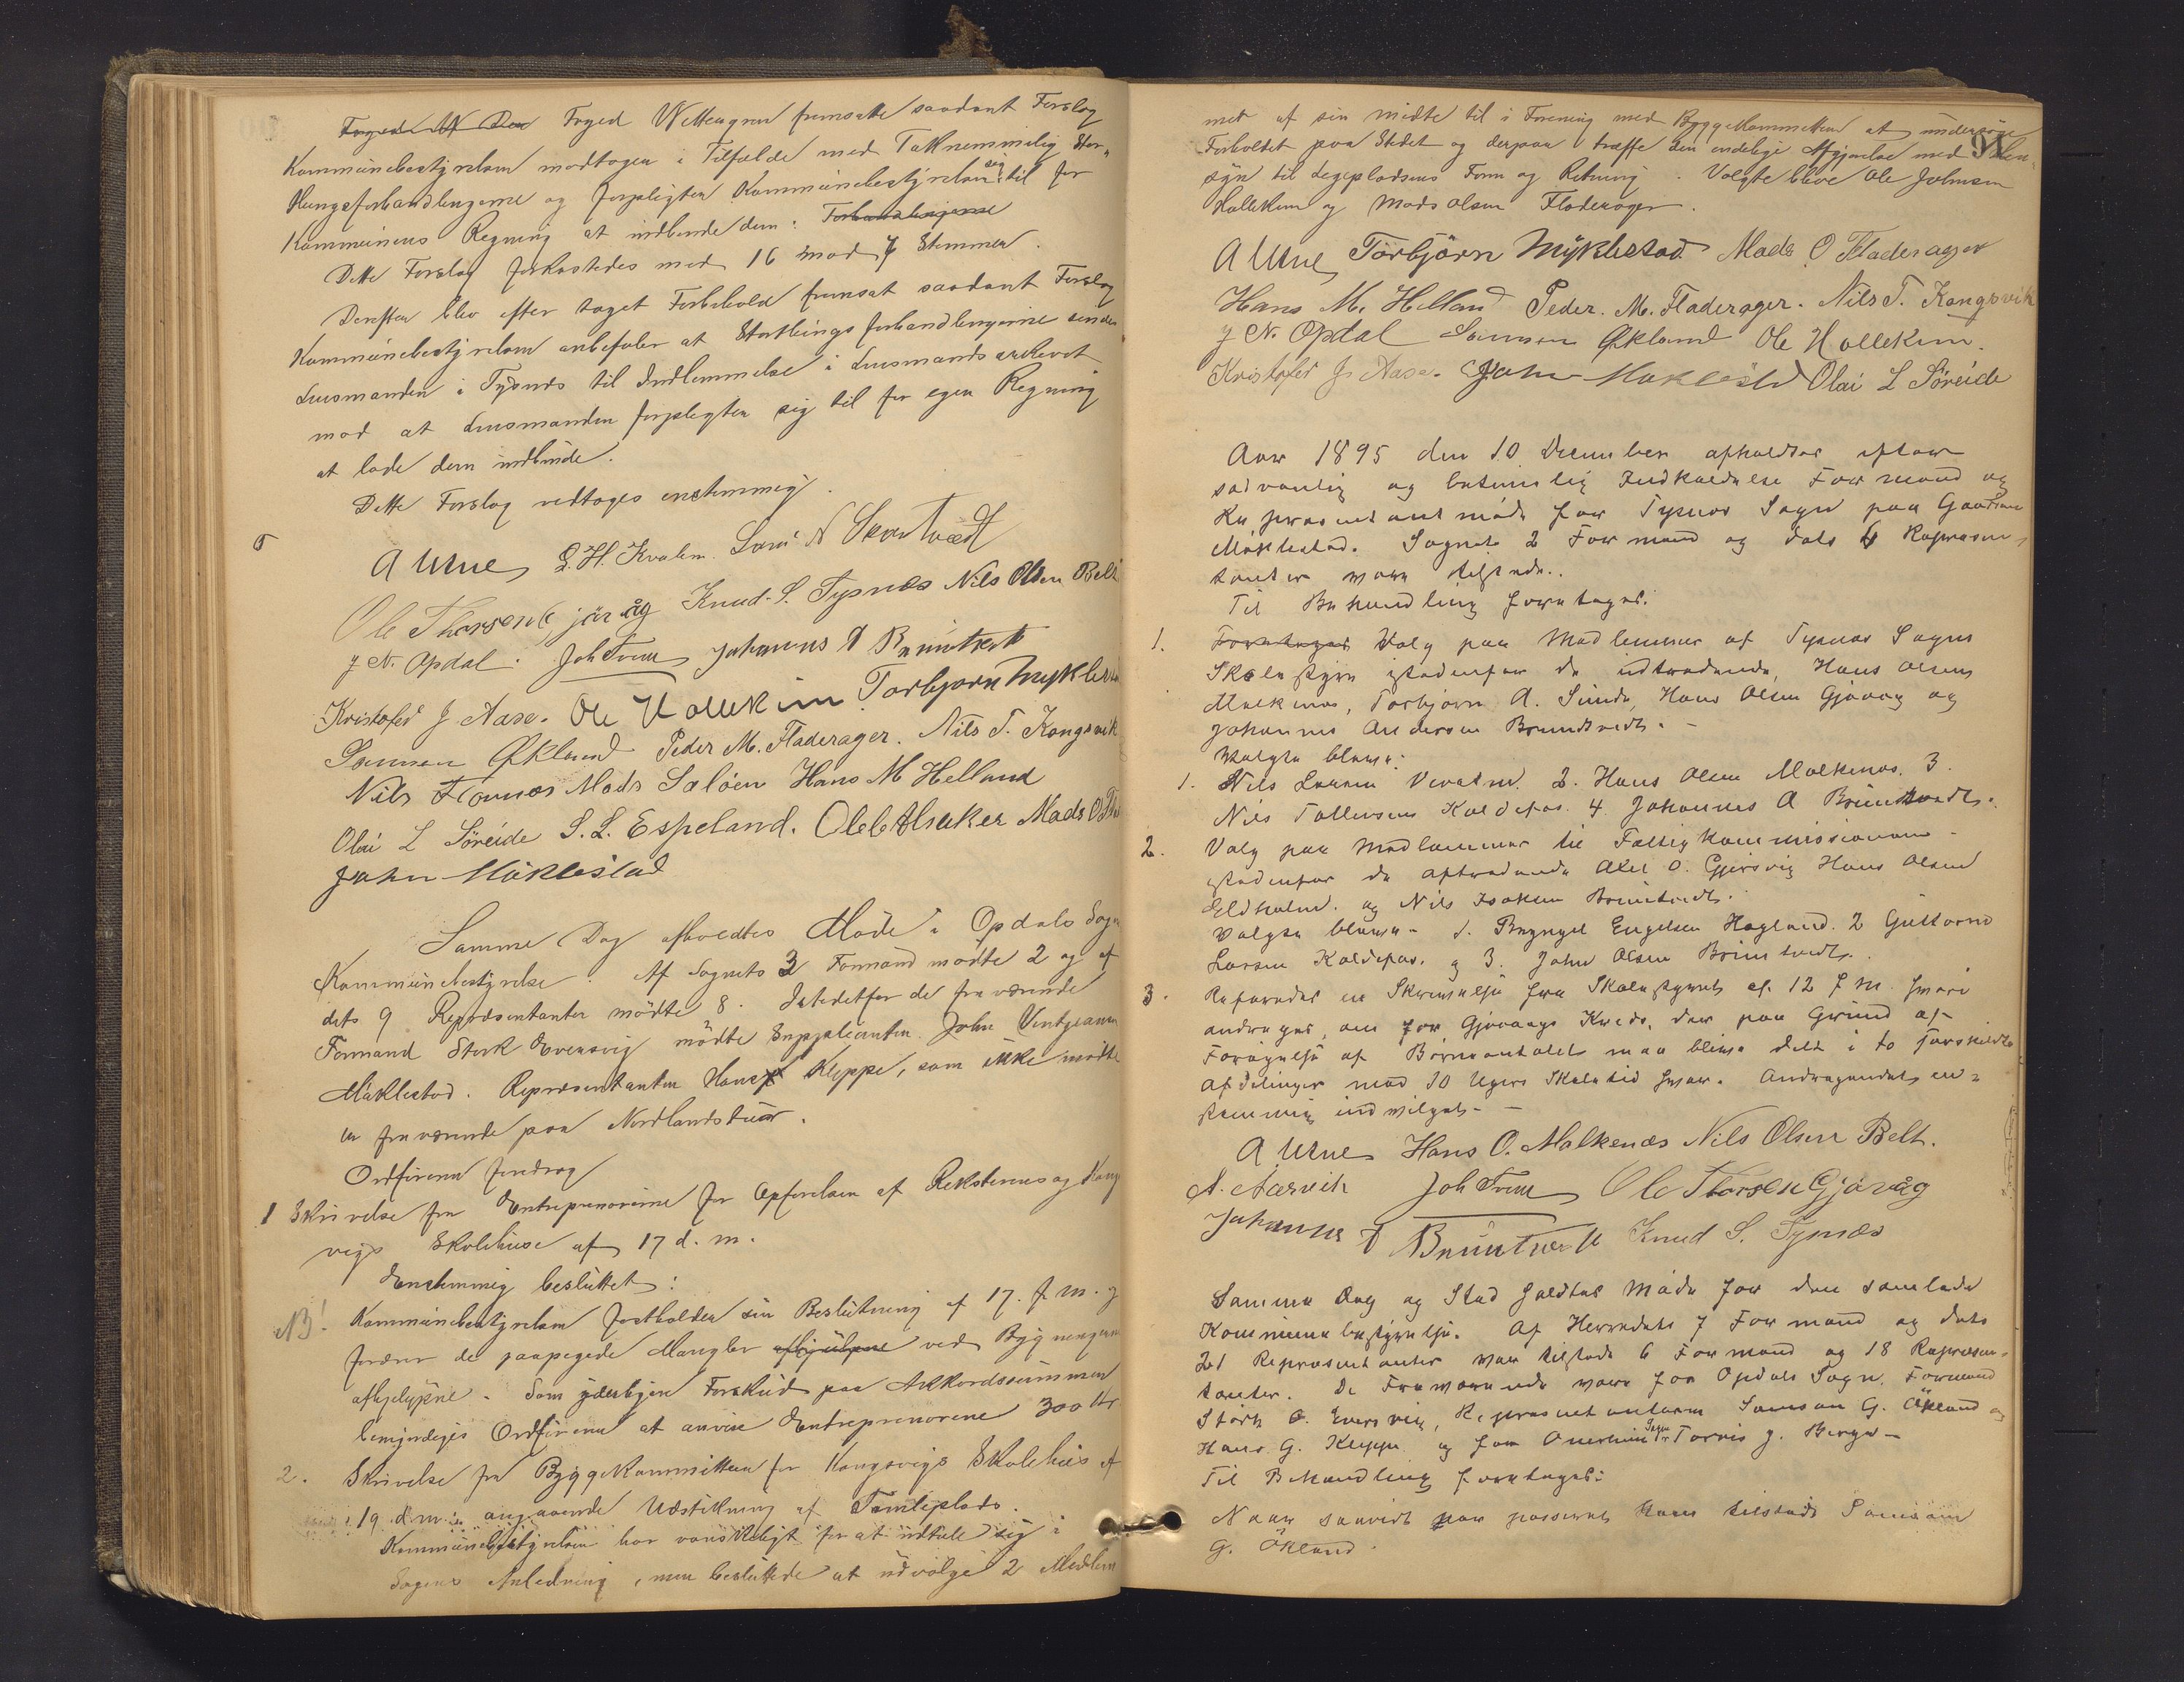 Foged Wettergren fremsatte saadant Forslag
Kommunebestyrelsen modtager i Tilfælde med Taknemmelig Stor-
thingsforhandlingerne og forpligter Kommunebestyrelsen sig til for
Kommunens Regning at indbinde dem: Forhandlingerne
Dette Forslag forkastedes med 16 mod 7 Stemmer.
Derefter blev efter taget Forbehold fremsat saadant Forslag
Kommunebestyrelsen anbefaler at Storthings forhandlingerne sendes
Lensmanden i Tysnes til Indlemmelse i Lensmandsarkivet
mod at Lensmanden forpligter sig til for egen Regning
at lade dem indbinde.
Dette Forslag vedtages enstemmig.
A Uene
Ole Thorsen Gjøvåg Knud S. Tysnes Nils Olsen Belt
J N. Opdal. Joh Trene Johannes A Bruntvedt
Kristofer J. Aase. Ole Hollekim Torbjørn Myklestad
Samson Økland Peder M. Fladerager. Nils T. Kongsvik
Nils Mads Søløen Hans M Helland
Olai L Søreide S. L. Espeland. Mads O
John Møklestad
Samme Dag afholdtes Møde i Opdals Sogns
Kommunebestyrelse. Af Sognets 3 Formænd mødte 2 og af
dets 9 Repræsentanter mødte 8. Istedetfor de fraværende
Formand Størk Eversvig mødte Suppleanten John
Møklestad. Repræsentanten Hans Kleppe, som ikke mødte
er fraværende paa Nordlandstur.
Ordføreren foredrog
1 Skrivelse fra Entreprenørerne for Opførelsen af Reksterens og Kongs-
vigs Skolehuse af 17 d. m.
Enstemmig besluttet:
NB! Kommunebestyrelsen fastholder sin Beslutning af 17. f. m. og
fordrer de paapegede Mangler afhjulpne ved Bygningerne
afhjelpne. Som yderligere Forskud paa Akkordsummen
bemyndiges Ordføreren at anvise Entreprenørene 300 Kr
2. Skrivelse fra Byggekommitteen for Kongsvigs Skolehus af
19 d. m. angaaende Udstikning af Tomteplads.
Kommunebestyrelsen har vanskeligt for at udtale sig i
Sagens Anledning, men besluttede at udvælge 2 Medlem
mer af sin midte til i Forening med Byggekommitteen at undersøge
Forholdet paa Stedet og derpaa træffe den endelige Afgjørelse med Hen-
syn til Legepladsens Form og Retning. Valgte bleve Ole Johnsen
Hollekim og Mads Olsen Fladerager.
A Uene Torbjørn Myklestad Mads O Fladerager
Hans M. Helland Peder. M. Fladerager. Nils T. Kongsvik
J N. Opdal Samson Økland Ole Hollekim.
Kristofer J Aase. John Møklestad Olai L Søreide
Aar 1895 den 10 December afholdtes efter
sædvanlig og betimelig Indkaldelse Formænd og
Repræsentantmøde for Tysnes Sogn paa Gaarden
Møklestad. Sognets 2 Formænd og dets 6 Repræsen-
tanter vare tilstede..
Til Behandling foretages:
1. Foretages Valg paa Medlemmer af Tysnes Sogns
Skolestyre istedenfor de udtrædende, Hans Olsen
Malkenes, Torbjørn A. Sunde, Hans Olsen Gjøvaag og
Johannes Andersen Bruntvedt. -
Valgte bleve:
1. Nils Larsen 2. Hans Olsen Malkenes. 3.
Nils Tollevsen Koldefos. 4 Johannes A Bruntvedt.
2. Valg paa Medlemmer til Fattigkommissionen -
istedenfor de aftrædende Axel O. Gjersvig Hans Olsen
Eldholm. og Nils Isaksen Bruntvedt.
Valgte bleve - 1. Engelsen Hagland. 2 Guttorm
Larsen Koldefos. og 3. John Olsen Bruntvedt.
3. Refereredes en Skrivelse fra Skolestyret af 12 f m. hvori
andrages om for Gjøvaags Kreds, der paa Grund af
Forøgelse af Børneantallet maa blive delt i to særskilte
Afdelinger med 10 Ugers Skoletid hver. Andragendet en-
stemmig indvilget. -
A Uene Hans O. Malkenæs Nils Olsen Belt.
A. Aarvik Joh Trene Ole Thorsen Gjøvåg
Johannes A Bruntvedt Knud S. Tysnæs
Samme Dag og Sted holdtes Møde for den samlede
Kommunebestyrelse. Af Herredets 7 Formænd og dets
21 Repræsentanter var tilstede 6 Formænd og 18 Repræsen-
tanter. De Fraværende vare for Opdals Sogn. Formand
Størk O. Eversvig, Repræsentanterne Samson G. Økland og
Hans G. Kleppe og for Onarheim Sogn Torris J. Berge -
Til Behandling foretages:
Naar saavidt var passeret kom tilstede Samson
G. Økland.